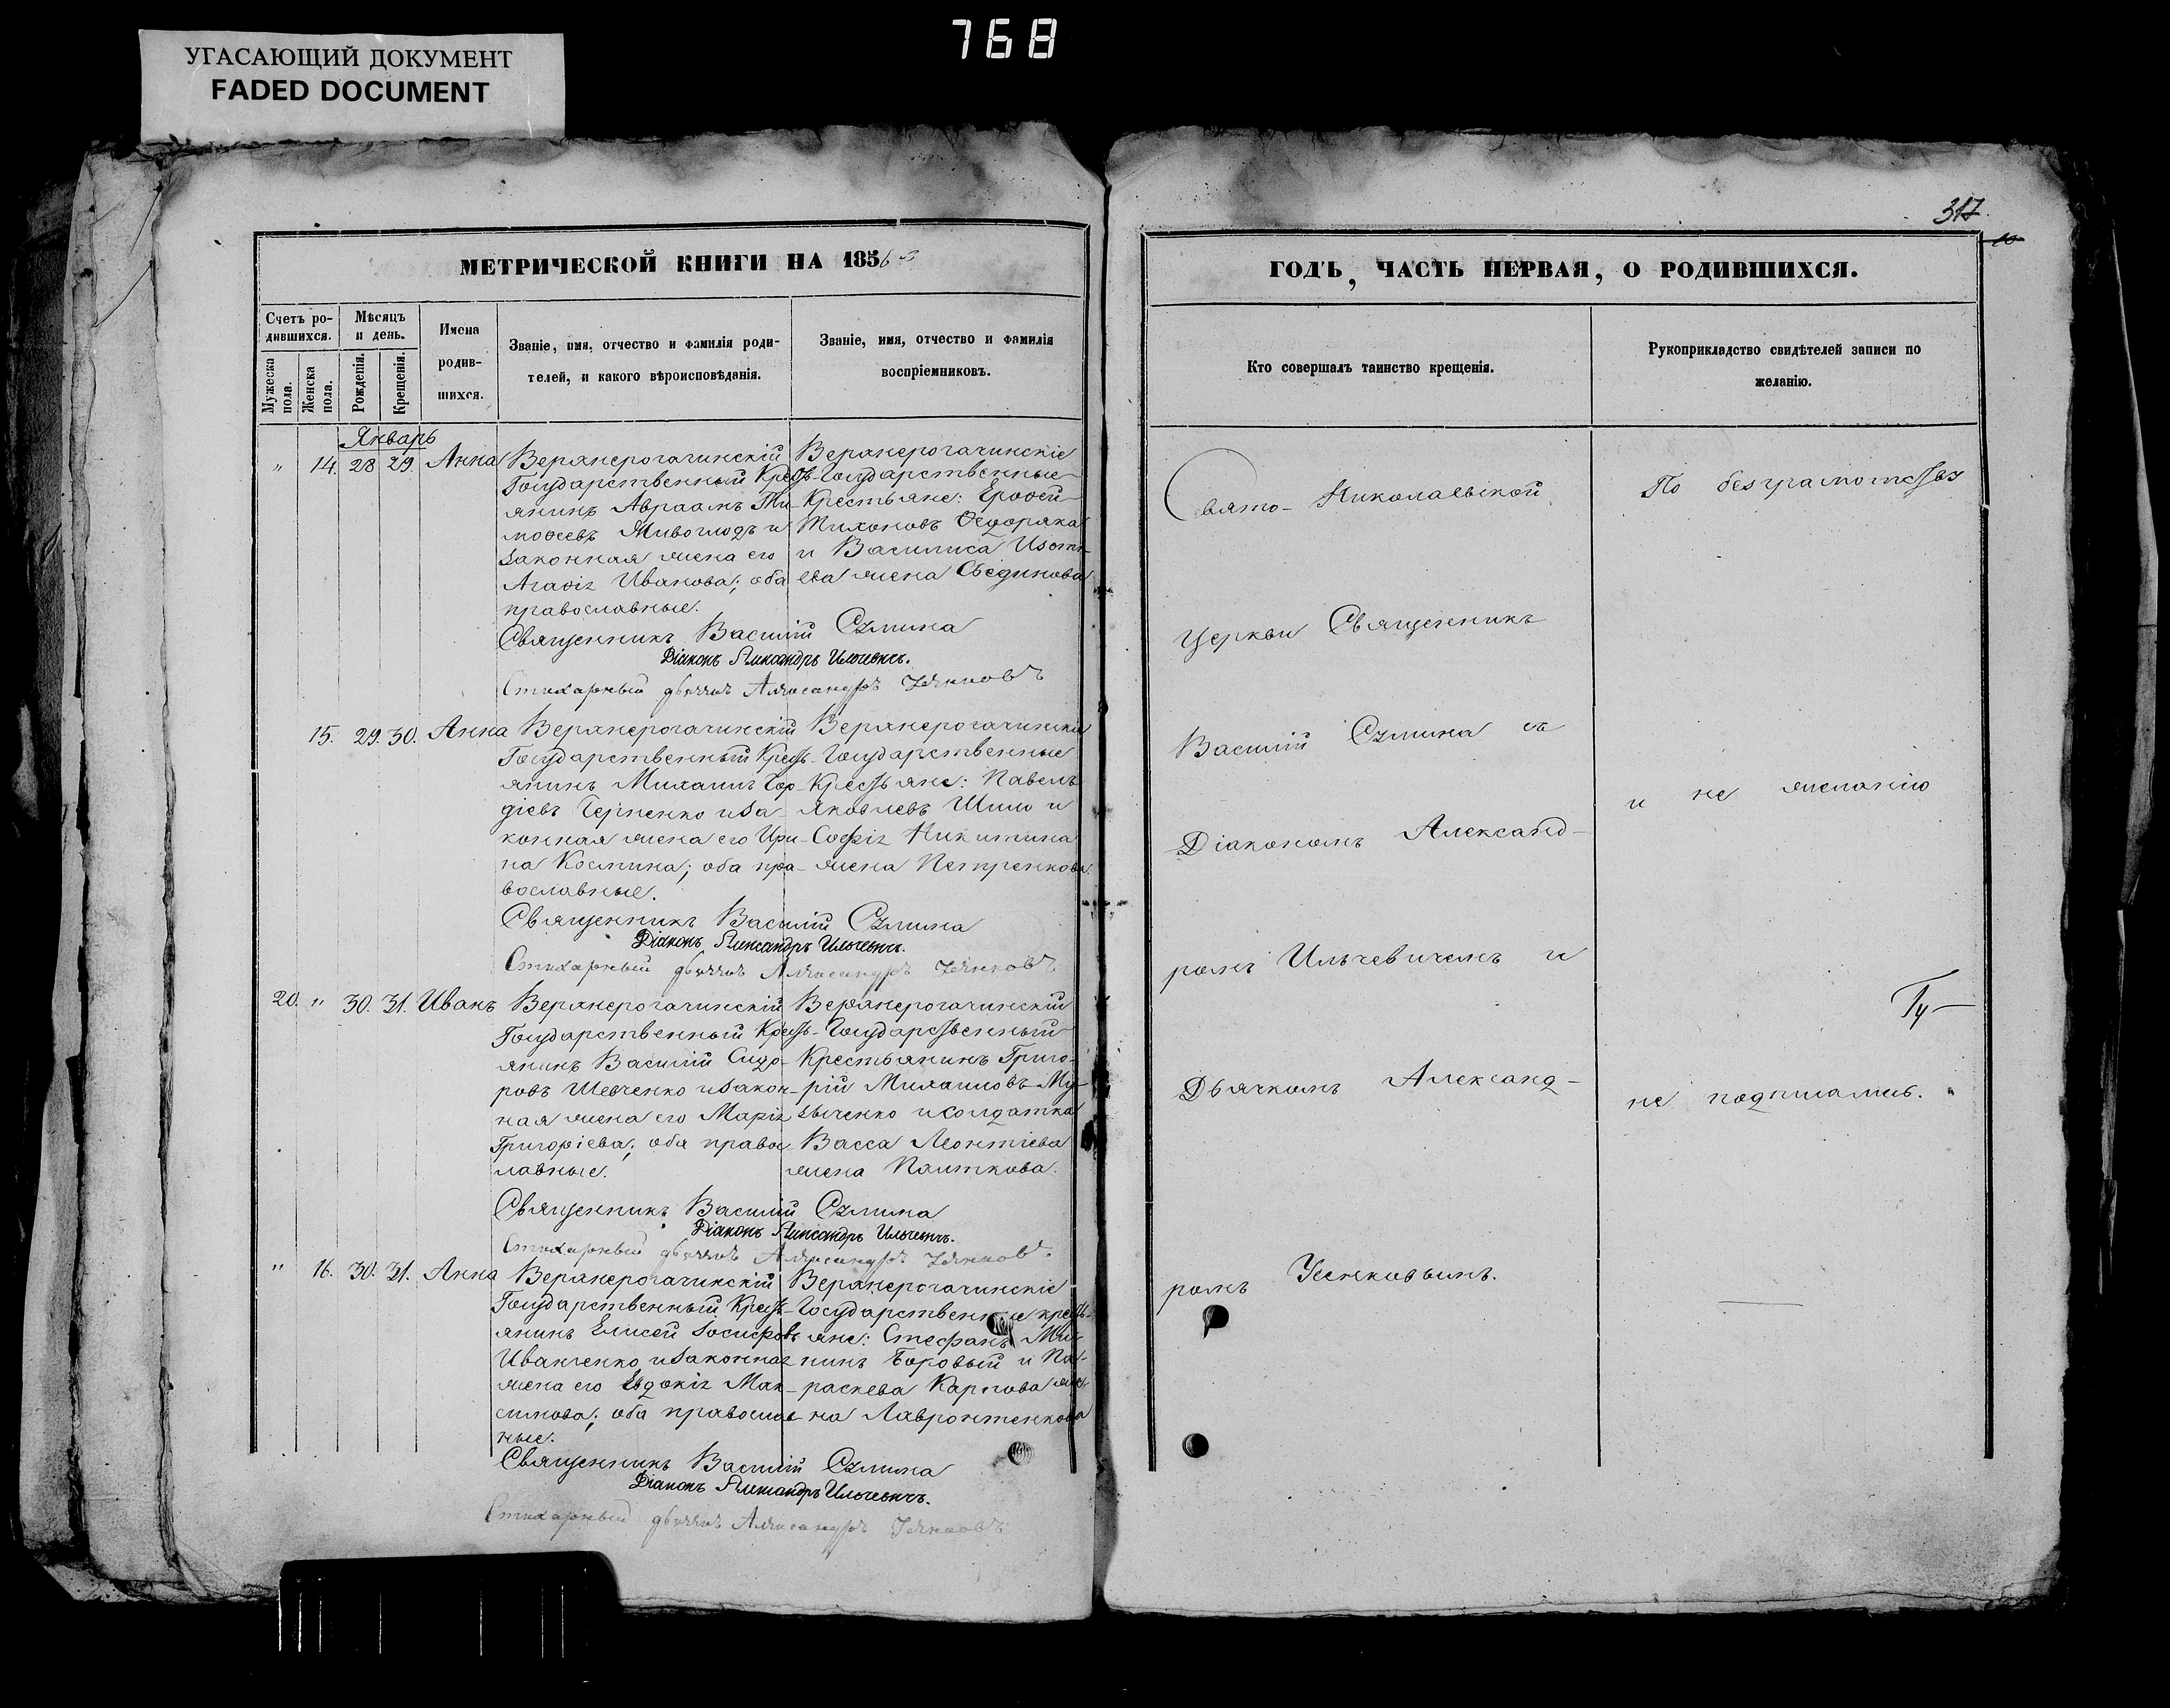 768
УГАСАЮЩИЙ ДОКУМЕНТ
FADED DOCUMENT
МЕТРИЧЕСКОЙ КНИГИ НА 185
Счетъ ро-
дившихся.
Мужеска пола.
Женска пола.
Мѣсяцъ
и день.
Рожденія.
Крещенія.
Имена
родив-
шихся.
Званіе, имя, отчество и фамилія роди-
телей, и какого вѣроисповѣданія.
Званіе, имя, отчество и фамилія
воспріемниковъ.
Январь
" 14. 28 29. Анна
Верхнерогачинскій
Государственный Кресть-
янинъ Авраамъ Ти-
моѳеевъ Живоглодъ и
законная жена его
Агафія Иванова; оба
православные.
Верхнерогачинскіе
Государственные
Крестьяне: Ерофей
Тихоновъ Ѳедоряка
и Василиса
ева жена Съединова
Священникъ Василій Сулима
Діаконъ Александръ Ильчевичъ.
Стихарный дьячокъ Александръ Усенковъ
15. 29. 30. Анна
Верхнерогачинскій
Государственный Кресть-
янинъ Михаилъ Гор-
дѣевъ Черненко и за-
конная жена его Ири-
на Космина; оба пра-
вославные.
Верхнерогачинскіе
Государственные
Крестьяне: Павелъ
Яковлевъ Шило и
Софія Никитина
жена Петренкова.
Священникъ Василій Сулима
Діаконъ Александръ Ильчевичъ.
Стихарный дьячокъ Александръ Усенковъ
20. " 30. 31. Иванъ
Верхнерогачинскій
Государственный Кресть-
янинъ Василій Сидо-
ровъ Шевченко и закон-
ная жена его Марія
Григоріева; оба правос-
лавные.
Верхнерогачинскій
Государственный
Крестьянинъ Григо-
рій Михаиловъ Му-
зыченко и солдатка
Васса Леонтіева
жена Плиткова.
Священникъ Василій Сулима
Діаконъ Александръ Ильчевичъ.
Стихарный дьячокъ Александръ Усенковъ.
" 16. 30. 31. Анна
Верхнерогачинскій
Государственный Кресть-
янинъ Елисей Іосифовъ
Иванченко и законная
жена его Евдокія Мак-
симова; оба православ-
ные.
Верхнерогачинскіе
Государственные кресть-
яне: Стефанъ
нинъ Боровый и Па-
раскева Карпова же-
на Лавронтенкова
Священникъ Василій Сулима
Діаконъ Александръ Ильчевичъ.
Стихарный дьячокъ Александръ Усенковъ
317.
10
ГОДЪ, ЧАСТЬ ПЕРВАЯ, О РОДИВШИХСЯ.
Кто совершалъ таинство крещенія.
Рукоприкладство свидѣтелей записи по
желанію.
Свято- Николаевской
Церкви Священникъ
Василій Сулима съ
Діакономъ Александ-
ромъ Ильчевичемъ и
Дьячкомъ Александ-
ромъ Усенковымъ.
По безграмотству
и не желанію
не подписались.